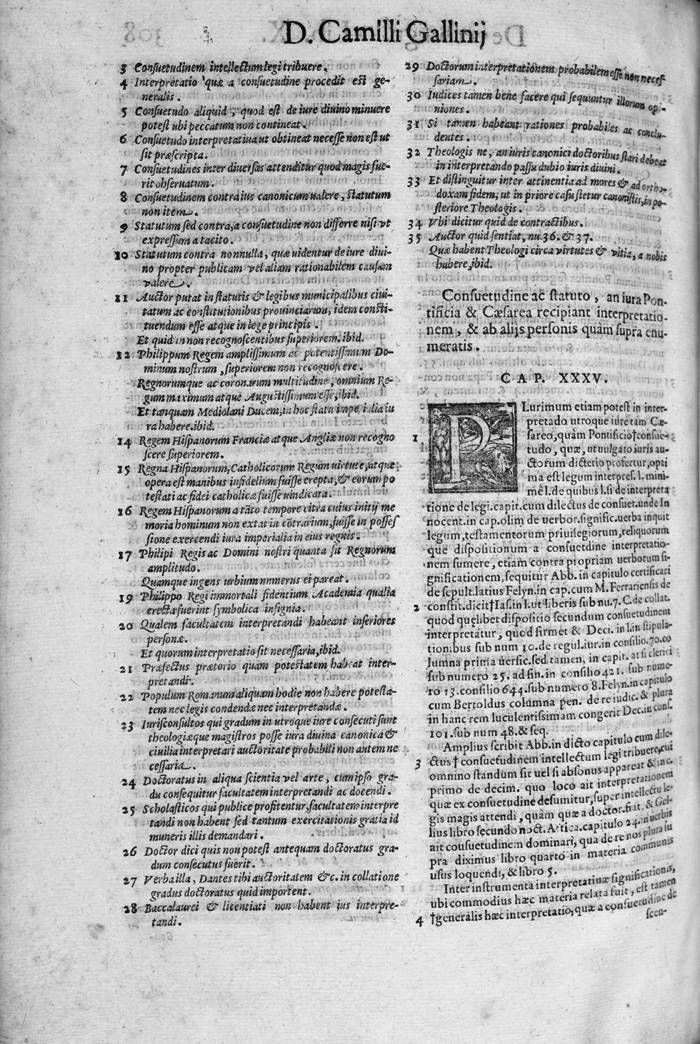 D. Camilli Gallinij
3 Consuetudinem intellectum legi tribuere.
4 Interpretatio quæ a consuetudine procedit est ge-
neralis.
5 Consuetudo aliquid, quod est de iure diuino minuere
potest ubi peccatum non contineat.
6 Consuetudo interpretatiua ut obtineat necesse non est ut
sit præscripta.
7 Consuetudines inter diuersas attenditur quod magis fue-
rit obseruatum.
8 Consuetudinem contra ius canonicum valere, statutum
non item.
9 Statutum sed contra, a consuetudine non differre nisi vt
expressum a tacito.
10 Statutum contra nonnulla, quæ uidentur de iure diui-
no propter publicam vel aliam rationabilem causam
valere.
11 Auctor putat in statutis & legibus municipalibus ciui-
tatum ac constitutionibus prouinciarum, idem consti-
tuendum esse atque in lege principis.
Et quid in non recognoscentibus superiorem. ibid.
12 Philippum Regem amplissimum ac potentissimum Do-
minum nostrum, superiorem non recognoscere.
Regnorumque ac coronarum multitudine, omnium Re-
gum maximum atque Augustissimum esse, ibid.
Et tanquam Mediolani Ducem, in hoc statu imperialia iu
ra habere. ibid.
14 Regem Hispanorum Franciæ atque Angliæ non recogno
scere superiorem.
15 Regna Hispanorum, Catholicorum Regum uirtute, atque
opera est manibus infidelium fuisse erepta, & eorum po
testati ac fidei catholicæ fuisse uindicata.
16 Regem Hispanorum a tãto tempore vitra cuius initij me
moria hominum non extat in cõtrarium, fuisse in posses
sione exercendi iura imperialia in eius regnis.
17 Philipi Regis ac Domini nostri quanta sit Regnorum
amplitudo.
Quamque ingens urbium numerus ei pareat.
19 Philippo Regi immortali fidentium Academia qualia
erectæ fuerint symbolica insignia.
20 Qualem facultatem interpretandi habeant inferiores
personæ.
Et quorum interpretatio sit necessaria, ibid.
21 Præfectus prætorio quam potestatem habeat inter-
pretandi.
22 Populum Romanum aliquam hodie non habere potesta-
tem nec legis condendæ nec interpretandæ.
23 Iurisconsultos qui gradum in utroque iure consecuti sunt
theologiæque magistros posse iura diuina canonica &
ciuilia interpretari auctoritate probabili non autem ne
cessaria.
24 Doctoratus in aliqua scientia vel arte, cum ipso gra-
du consequitur facultatem interpretandi ac docendi.
25 Scholasticos qui publice profitentur, facultatem interpre
tandi non habent sed tantum exercitationis gratia id
muneris illis demandari.
26 Doctor dici quis non potest antequam doctoratus gra-
dum consecutus fuerit.
27 Verba illa, Dantes tibi auctoritatem &c. in collatione
gradus doctoratus quid importent.
28 Baccalaurei & licentiati non habent ius interpre-
tandi.
29 Doctorum interpretationem probabilem esse non neces-
sariam.
30 Iudices tamen bene facere qui sequuntur illorum opi-
niones.
31 Si tamen habeant rationes probabiles ac conclu-
dentes.
32 Theologis ne, an iuris canonici doctoribus stari debeat
in interpretando passu dubio iuris diuini.
33 Et distinguitur inter attinentia ad mores & ad ortho-
doxam fidem; ut in priore casu stetur canonistis, in po-
steriore Theologis.
34 Vbi dicitur quid de contractibus.
35 Auctor quid sentiat, nu. 36. & 37.
Quæ habent Theologi circa virtutes & vitia, a nobis
habere, ibid.
Consuetudine ac statuto, an iura Pon-
tificia & Cæsarea recipiant interpretatio-
nem, & ab alijs personis quàm supra enu-
meratis.
CAP. XXXV.
PLurimum etiam potest in inter-
pretado utroque iure tam Cæ-
1 sareo, quàm Pontificio † consue-
tudo, quæ, ut uulgato iuris au-
ctorum dicterio profertur, opti
ma est legum interpres. l. mini-
mè l. de quibus l. si de interpreta
tione de legi. capit. cum dilectus de consuet. unde In
nocent. in cap. olim de uerbor. signific. uerba inquit
legum, testamentorum priuilegiorum, reliquorum
que dispositionum a consuetudine interpretatio-
nem sumere, etiam contra propriam uerborum si-
gnificationem, sequitur Abb. in capitulo certificari
de sepult. latius Felyn. in cap. cum M. Ferrariensis de
2 constit. dicit † Ias. in l. ut liberis sub nu. 7. C. de collat.
quod quęlibet dispositio secundum consuetudinem
interpretatur, quod firmet & Deci. in l. in stipula-
tionibus sub num 10. de regul. iur. in consilio. 70. co
lumna prima uersic. sed tamen, in capit. at si clerici
sub numero 25. ad fin. in consilio 421. sub nume-
ro 13. consilio 644. sub numero 8. Felyn. in capitulo
cum Bertoldus columna pen. de re iudic. & plura
in hanc rem luculentissimam congerit Dec. in cons.
101. sub num 48. & seq.
Amplius scribit Abb. in dicto capitulo cum dile-
3 ctus † consuetudinem intellectum legi tribuere, cui
omnino standum sit uel si absonus appareat & inc.
primo de decim. quo loco ait interpretationem
quæ ex consuetudine desumitur, super intellectu le-
gis magis attendi, quam quæ a doctor. fiat. & Gel-
lius libro secundo noct. Attica. capitulo 24. in uerbis
ait consuetudinem dominari, qua de re nos plura su
pra diximus libro quarto in materia communis
usus loquendi, & libro 5.
Inter instrumenta interpretatiuæ significationis,
ubi commodius hæc materia relata fuit, est tamen
4 † generalis hæc interpretatio, quæ a consuetudine de
scen-